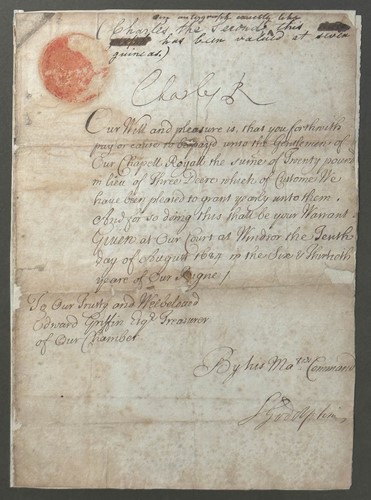 any autograph exactly like
(Charles, the Second, this
has been valued at seven
guineas.)
Charles R
Our Will and pleasure is, that you forthwith
pay or cause to be payd unto the Gentlemen of
Our Chappell Royall the sume of Twenty pounds
in lieu of Three Deere which of Custome We
have been pleased to grant yearly unto them.
And for so doing this shall be your Warrant
Given at Our Court at Windsor the Tenth
day of August 1684 in the Six & Thirtieth
yeare of Our Reigne /
To Our Trusty and Welbeloved
Edward Griffin Esqr. Treasuror
of Our Chamber
By his Maties Command
S Godolphin